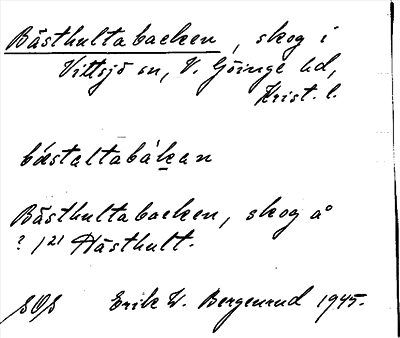 Båsthultabacken, skog i
Vittsjö sn, V. Göinge hd,
Krist. l.
båstaltabákan
Båsthultabacken, skog å
? 1²¹ Håsthult.
SOS Erik W. Bergenrud 1945.